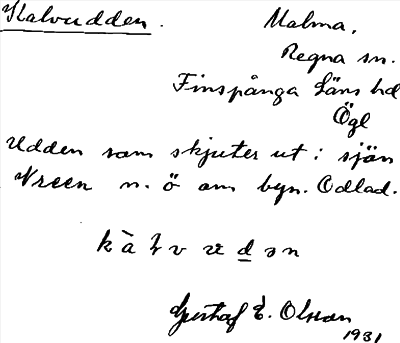 Kalvudden.
Malma,
Regna sn.
Finspånga läns hd
Ögl
Udden som skjuter ut i sjön
Vreen n. ö om byn. Odlad.
kàⱡv ɯdən
Gustaf E. Olsson
1931